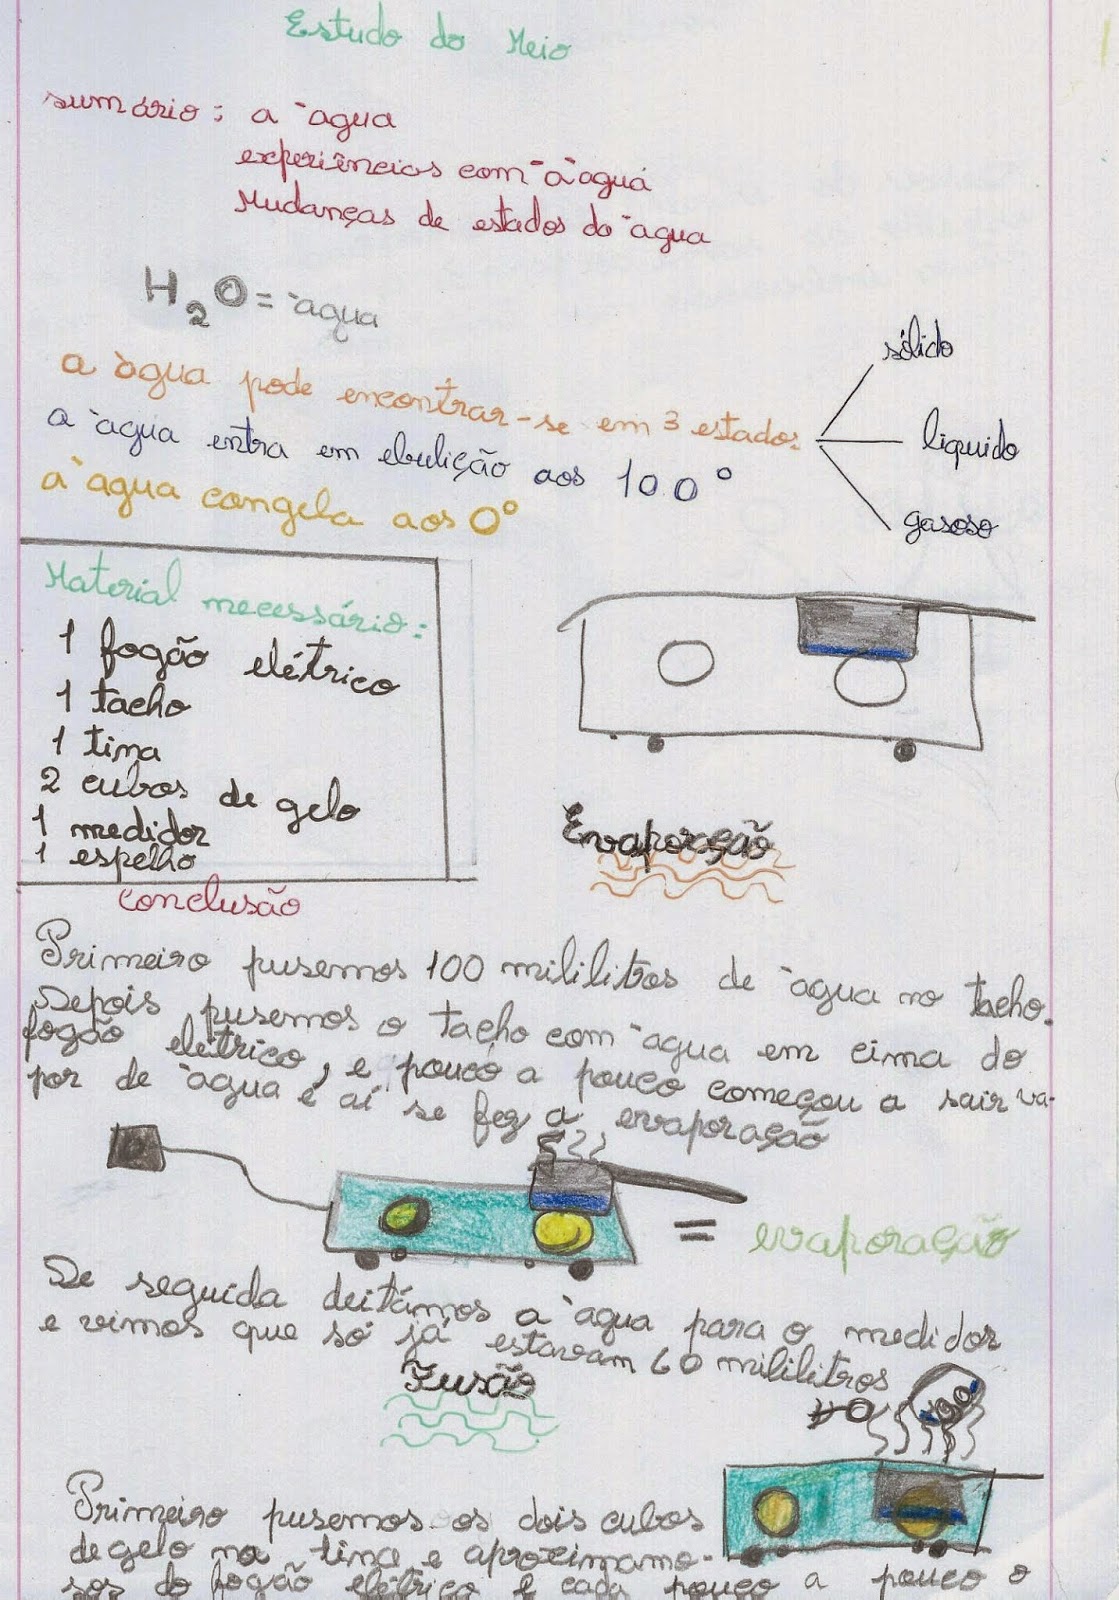 Estudo do Meio
sumário: a àgua
experiências com a àgua
Mudanças de estados da àgua
H2O = àgua
sólido
a àgua pode encontrar-se em 3 estados
liquido
a àgua entra em ebulição aos 100°
gasoso
a àgua congela aos 0°
Material necessário:
1 fogão elétrico
1 tacho
1 tina
2 cubos de gelo
1 medidor
1 espelho
Evaporação
conclusão
Primeiro pusemos 100 mililitros de àgua no tacho.
Depois pusemos o tacho com àgua em cima do
fogão elétrico, e pouco a pouco começou a sair va-
por de àgua e aí se fez a evaporação
= evaporação
De seguida deitámos a àgua para o medidor
e vimos que só já estavam 60 mililitros
Fusão
Primeiro pusemos os dois cubos
de gelo na tina e aproximamo-
sos do fogão elétrico e cada pouco a pouco o